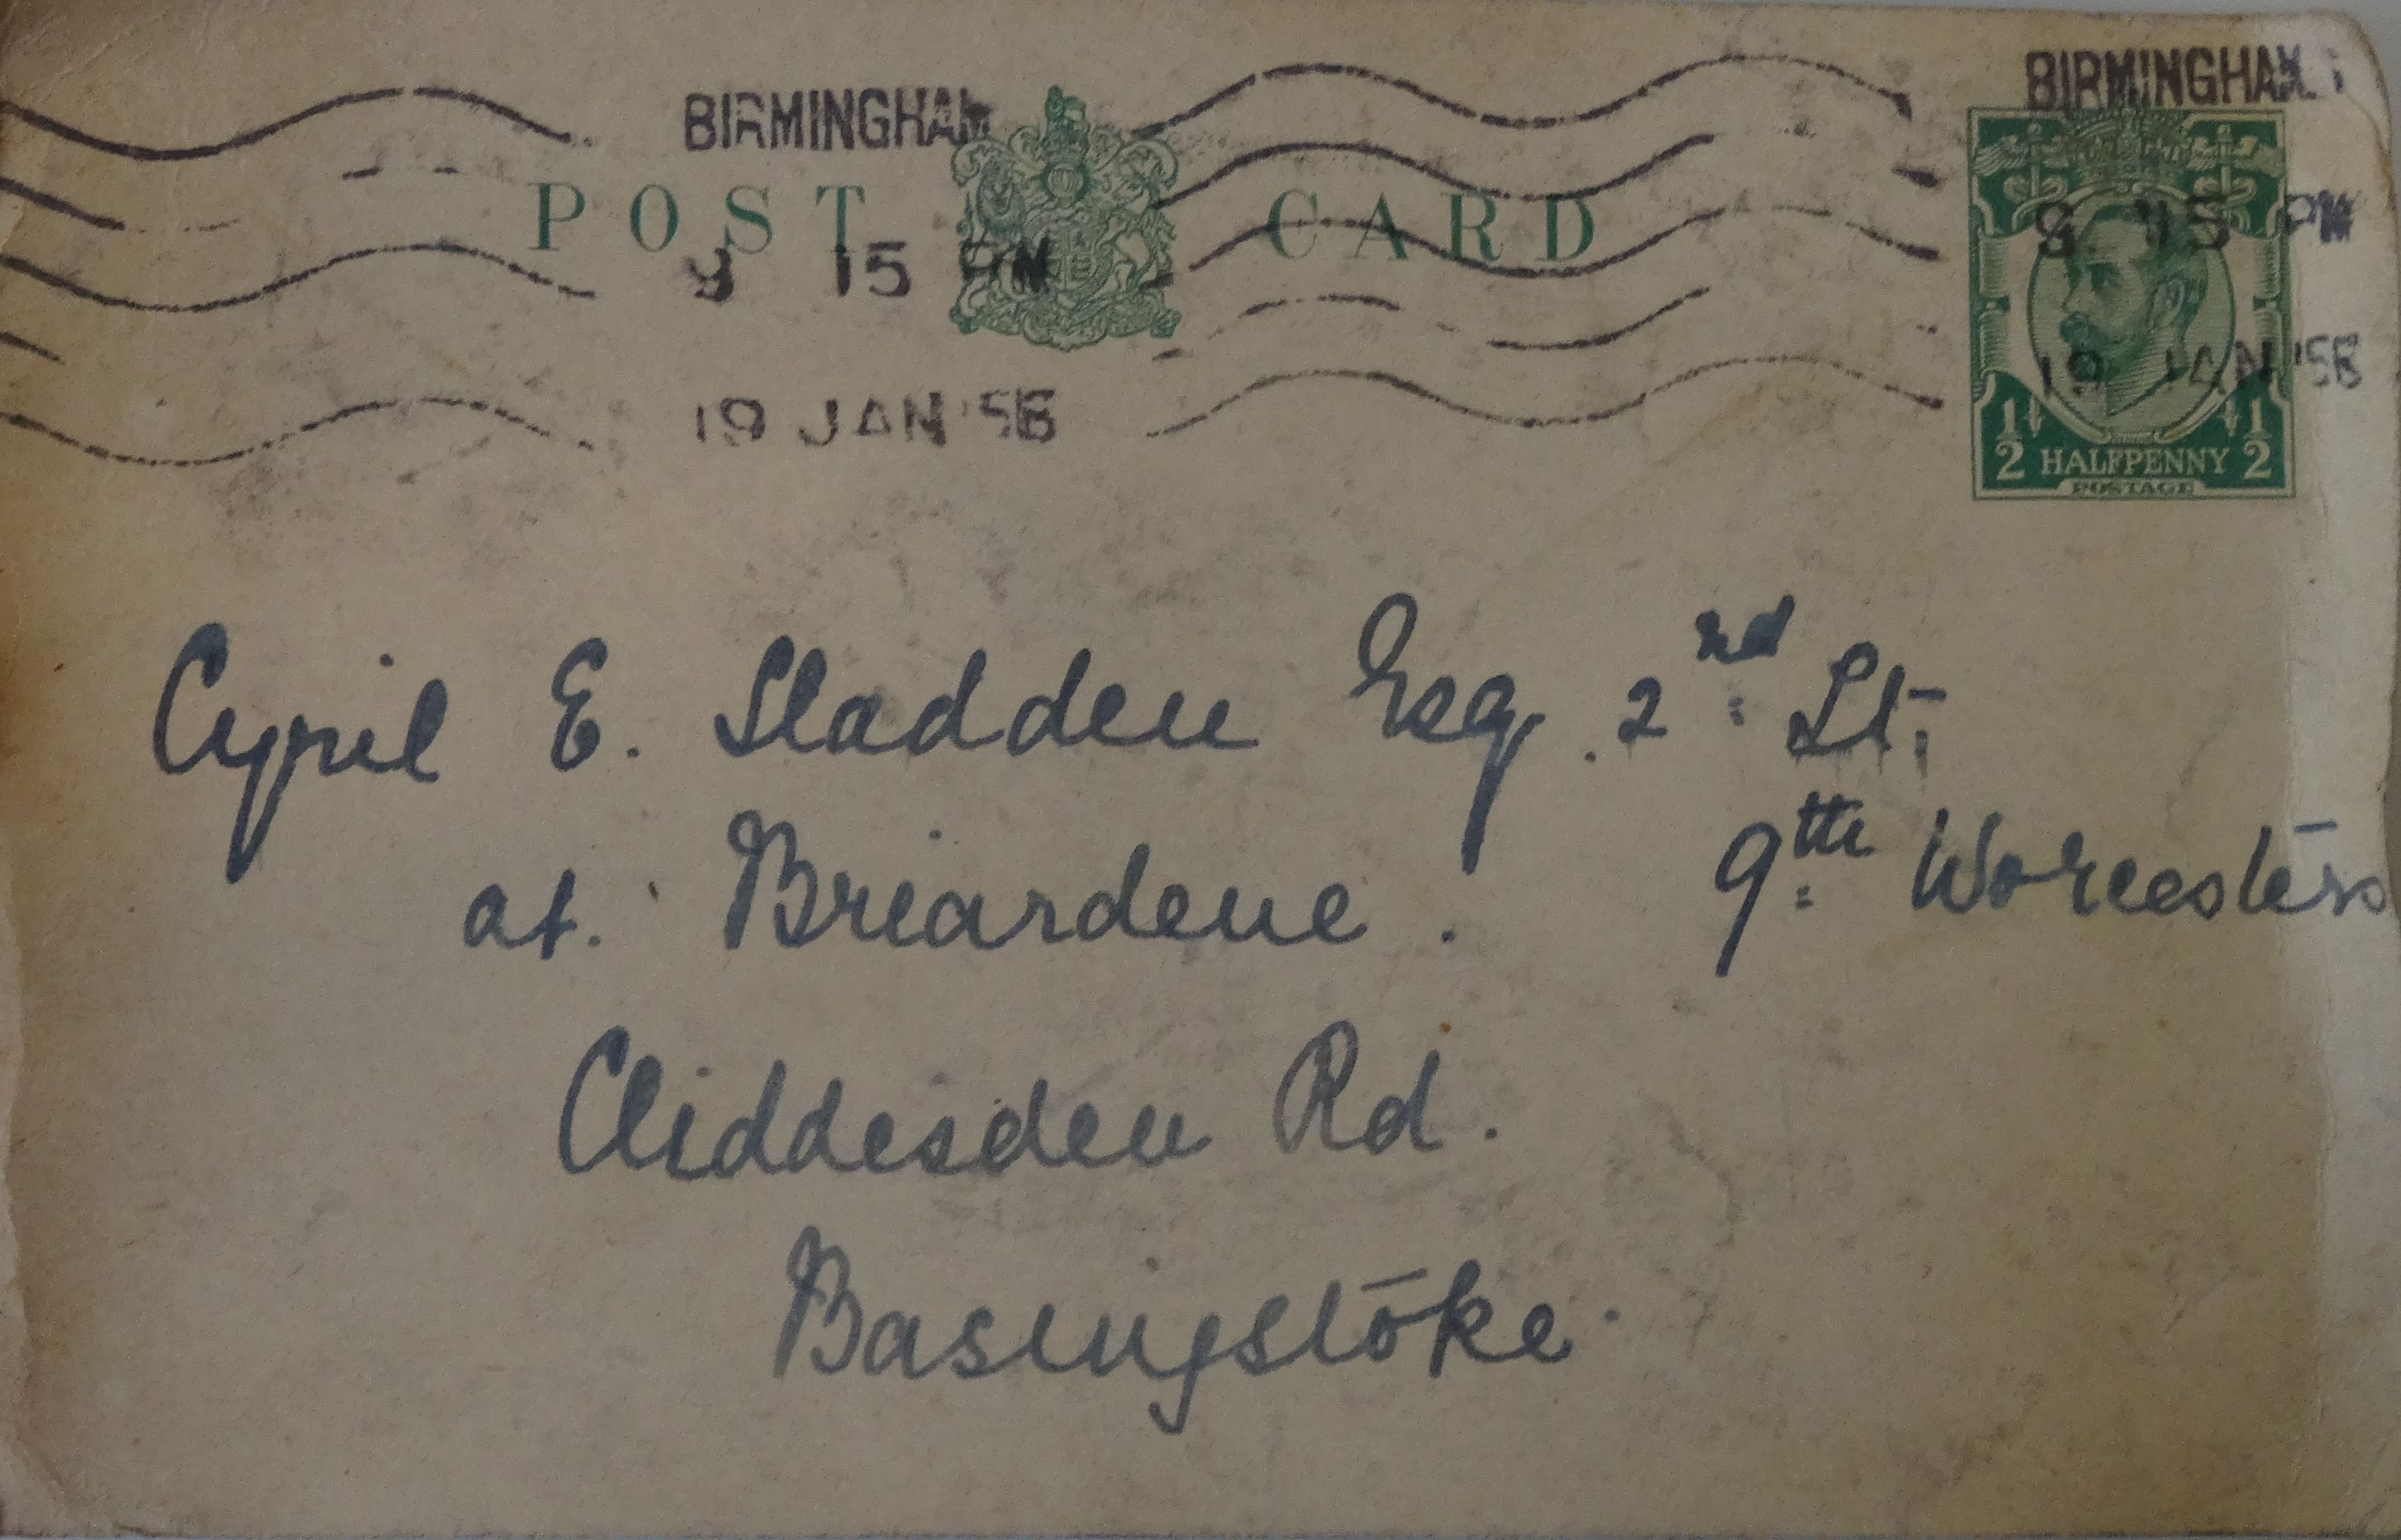 BIRMINGHAM BIRMINGHAM
POST CARD
15 PM 15 PM
19 JAN 19 JAN
1/2 HALFPENNY 1/2
POSTAGE
Cyril E. Sladden Esq. 2nd Lt.
at. Briardene. 9th Worcesters
Cliddesden Rd.
Basingstoke.